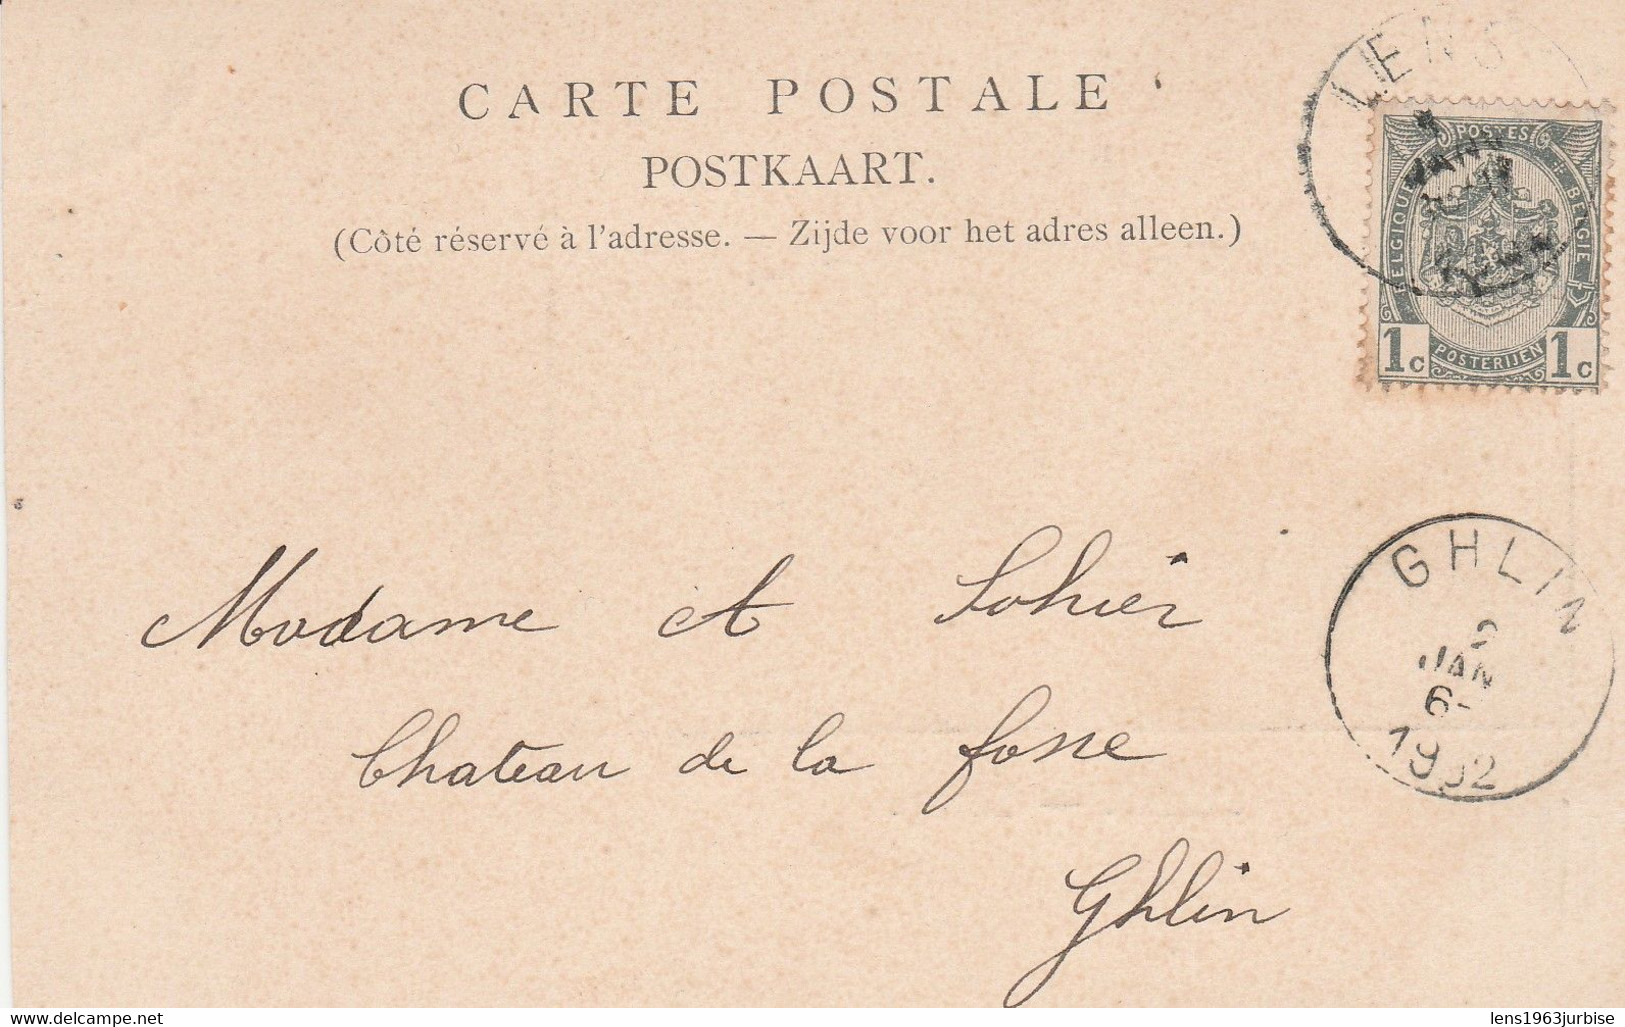 CARTE POSTALE
POSTKAART.
(Côté réservé à l'adresse. — Zijde voor het adres alleen.)
LENS
JANV
POSTES
BELGIQUE
BELGIË
1c POSTERIJEN 1c
GHLIN
2
JAN
6-
1902
Madame A Sohier
Chateau de la fosse
Ghlin
www.delcampe.net
lens1963jurbise